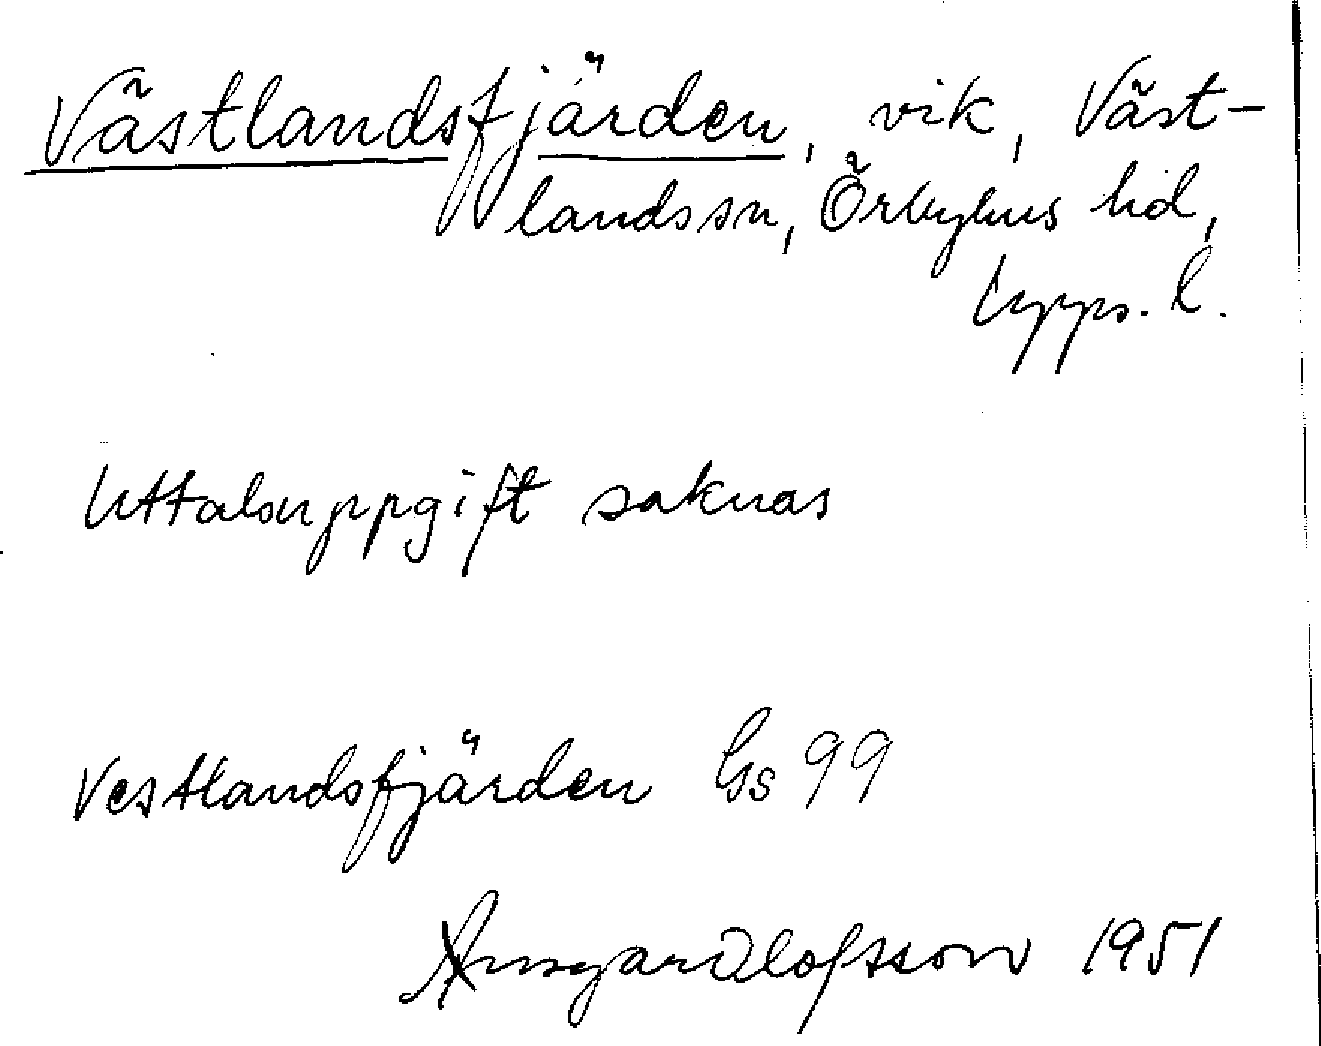 Västlandsfjärden, vik, Väst-
landssn, Örbyhus hd,
Upps. l.
Uttalsuppgift saknas
Vestlandsfjärden Gs 99
Ansgar Olofsson 1951